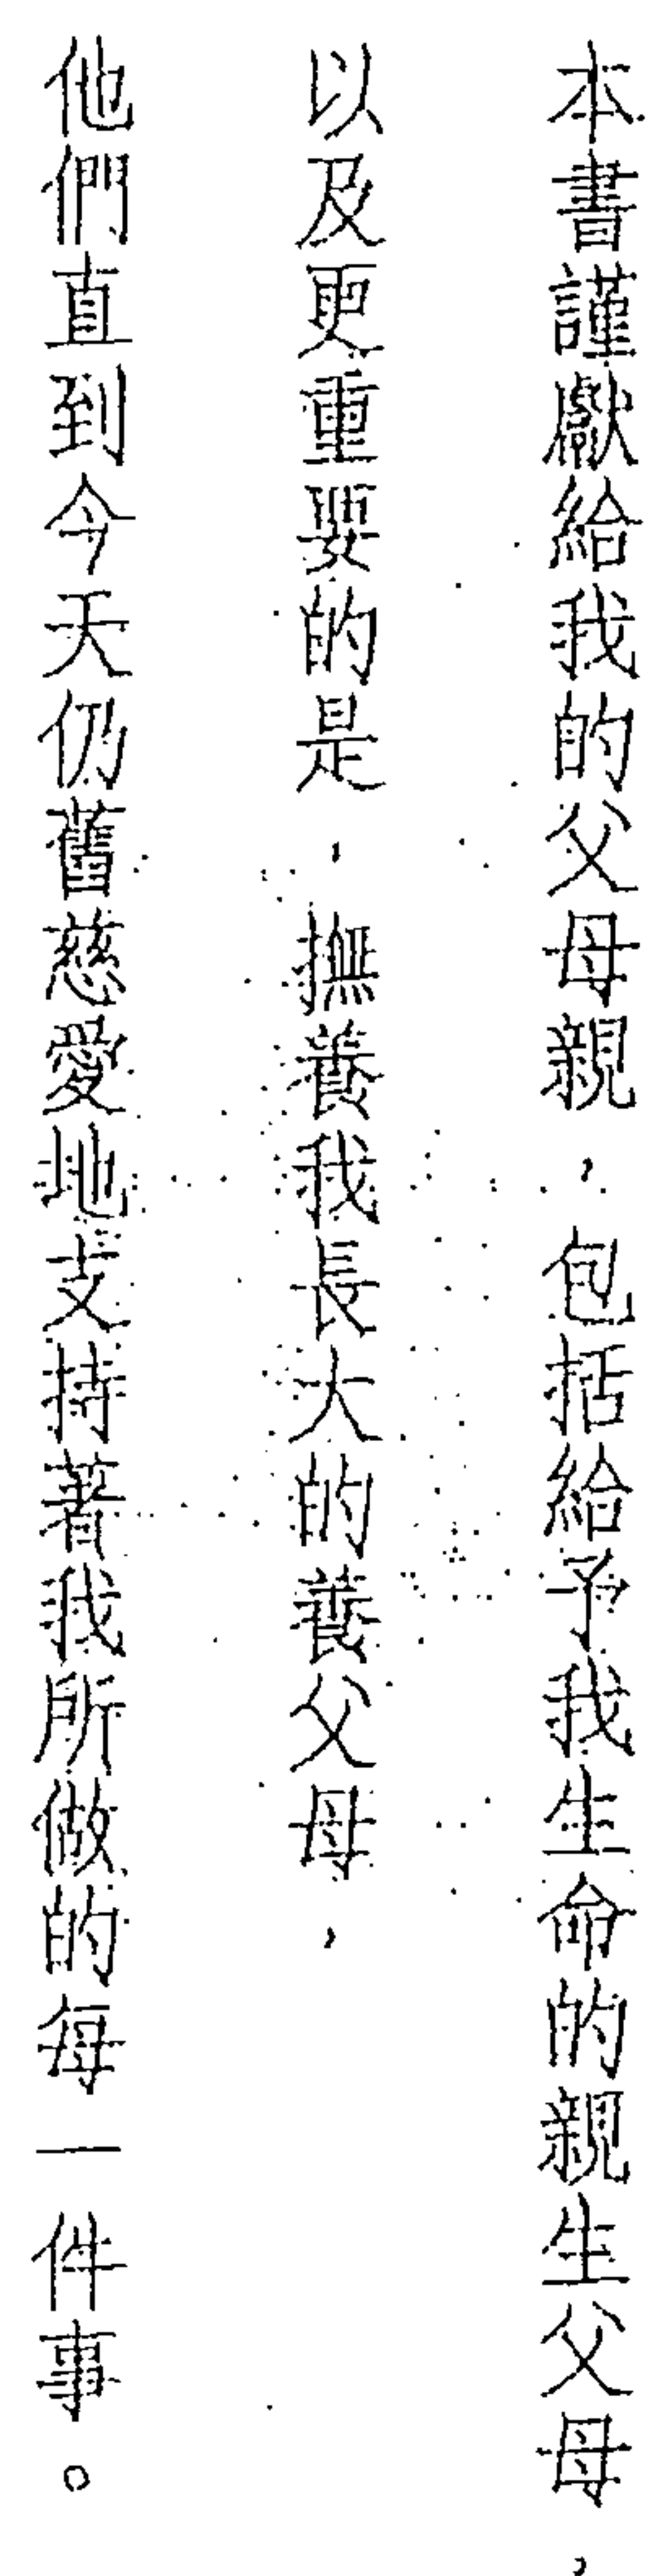 本書謹獻給我的父母親，包括給予我生命的親生父母，
以及更重要的是，撫養我長大的養父母，
他們直到今天仍舊慈愛地支持著我所做的每一件事。